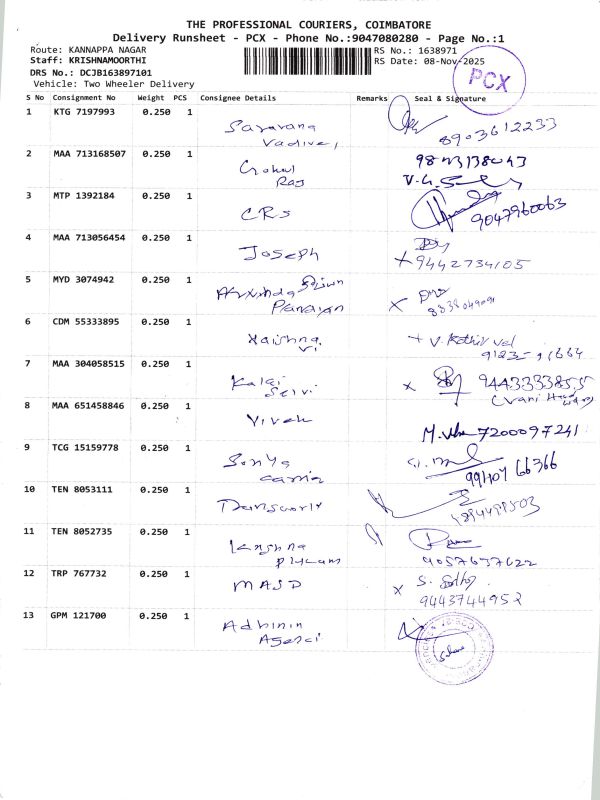 THE PROFESSIONAL COURIERS, COIMBATORE
Delivery Runsheet - PCX - Phone No.:9047080280 - Page No.:1
Route: KANNAPPA NAGAR RS No.: 1638971
Staff: KRISHNAMOORTHI RS Date: 08-Nov-2025
DRS No.: DCJB163897101
Vehicle: Two Wheeler Delivery
PCX
S No Consignment No Weight PCS Consignee Details Remarks Seal & Signature
1 KTG 7197993 0.250 1 Saravana 8903612233
Vadivel
2 MAA 713168507 0.250 1 Gokul
Raj V.G.
3 MTP 1392184 0.250 1 CRS 9047960063
4 MAA 713056454 0.250 1 Joseph
+9442734105
5 MYD 3074942 0.250 1 x
6 CDM 55333895 0.250 1 + V.
7 MAA 304058515 0.250 1 Kalai x 9443333855
Selvi (Vani
8 MAA 651458846 0.250 1 Vivek
M. 7200097241
9 TCG 15159778 0.250 1 Sonya
66366
10 TEN 8053111 0.250 1
11 TEN 8052735 0.250 1 Krishna
9057637622
12 TRP 767732 0.250 1 MASD x S.
9443744952
13 GPM 121700 0.250 1